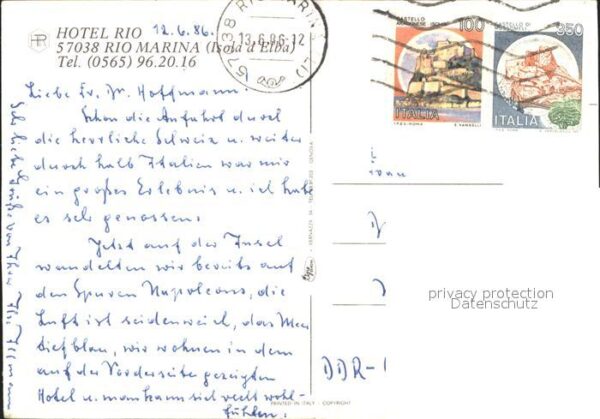 HOTEL RIO
12.6.86.
57038 RIO MARINA (Isola d'Elba)
Tel. (0565) 96.20.16
57038 RIO MARINA (LI)
13.6.86-12
CASTELLO
100
ITALIA
I.P.Z.S. ROMA
E. VANGELLI
CASTELLO DI
350
ITALIA
Liebe Fr. Dr. Hoffmann.
Schon die Anfahrt durch
die herrliche Schweiz u. weiter
durch halb Italien war mir
ein großes Erlebnis u. ich habe
es sehr genossen.
Jetzt auf der Insel
wandelten wir bereits auf
den Spuren Napoleons, die
Luft ist seidenweich, das Meer
tiefblau, wir wohnen in dem
auf der Vorderseite gezeigten
Hotel u. man kann sich recht wohl-
fühlen.
Sehr liebe Grüße von Ihrer
Frau
DDR-
privacy protection
Datenschutz
PRINTED IN ITALY - COPYRIGHT